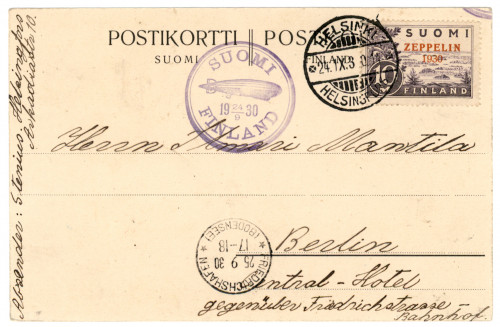 POSTIKORTTI POS
SUOMI
SUOMI
19 24/9 30
FINLAND
HELSINKI
FINLAND
24.IX.3
HELSINGF
SUOMI
ZEPPELIN
1930
10
FINLAND
Herrn Ilmari Mantila
Berlin
Central-Hotel
gegenüber Friedrichstrasse-
Bahnhof.
FRIEDRICHSHAFEN
25 9 30
17-18
(BODENSEE)
Absender: Stenius Helsingfors
Arkadiastr 10.